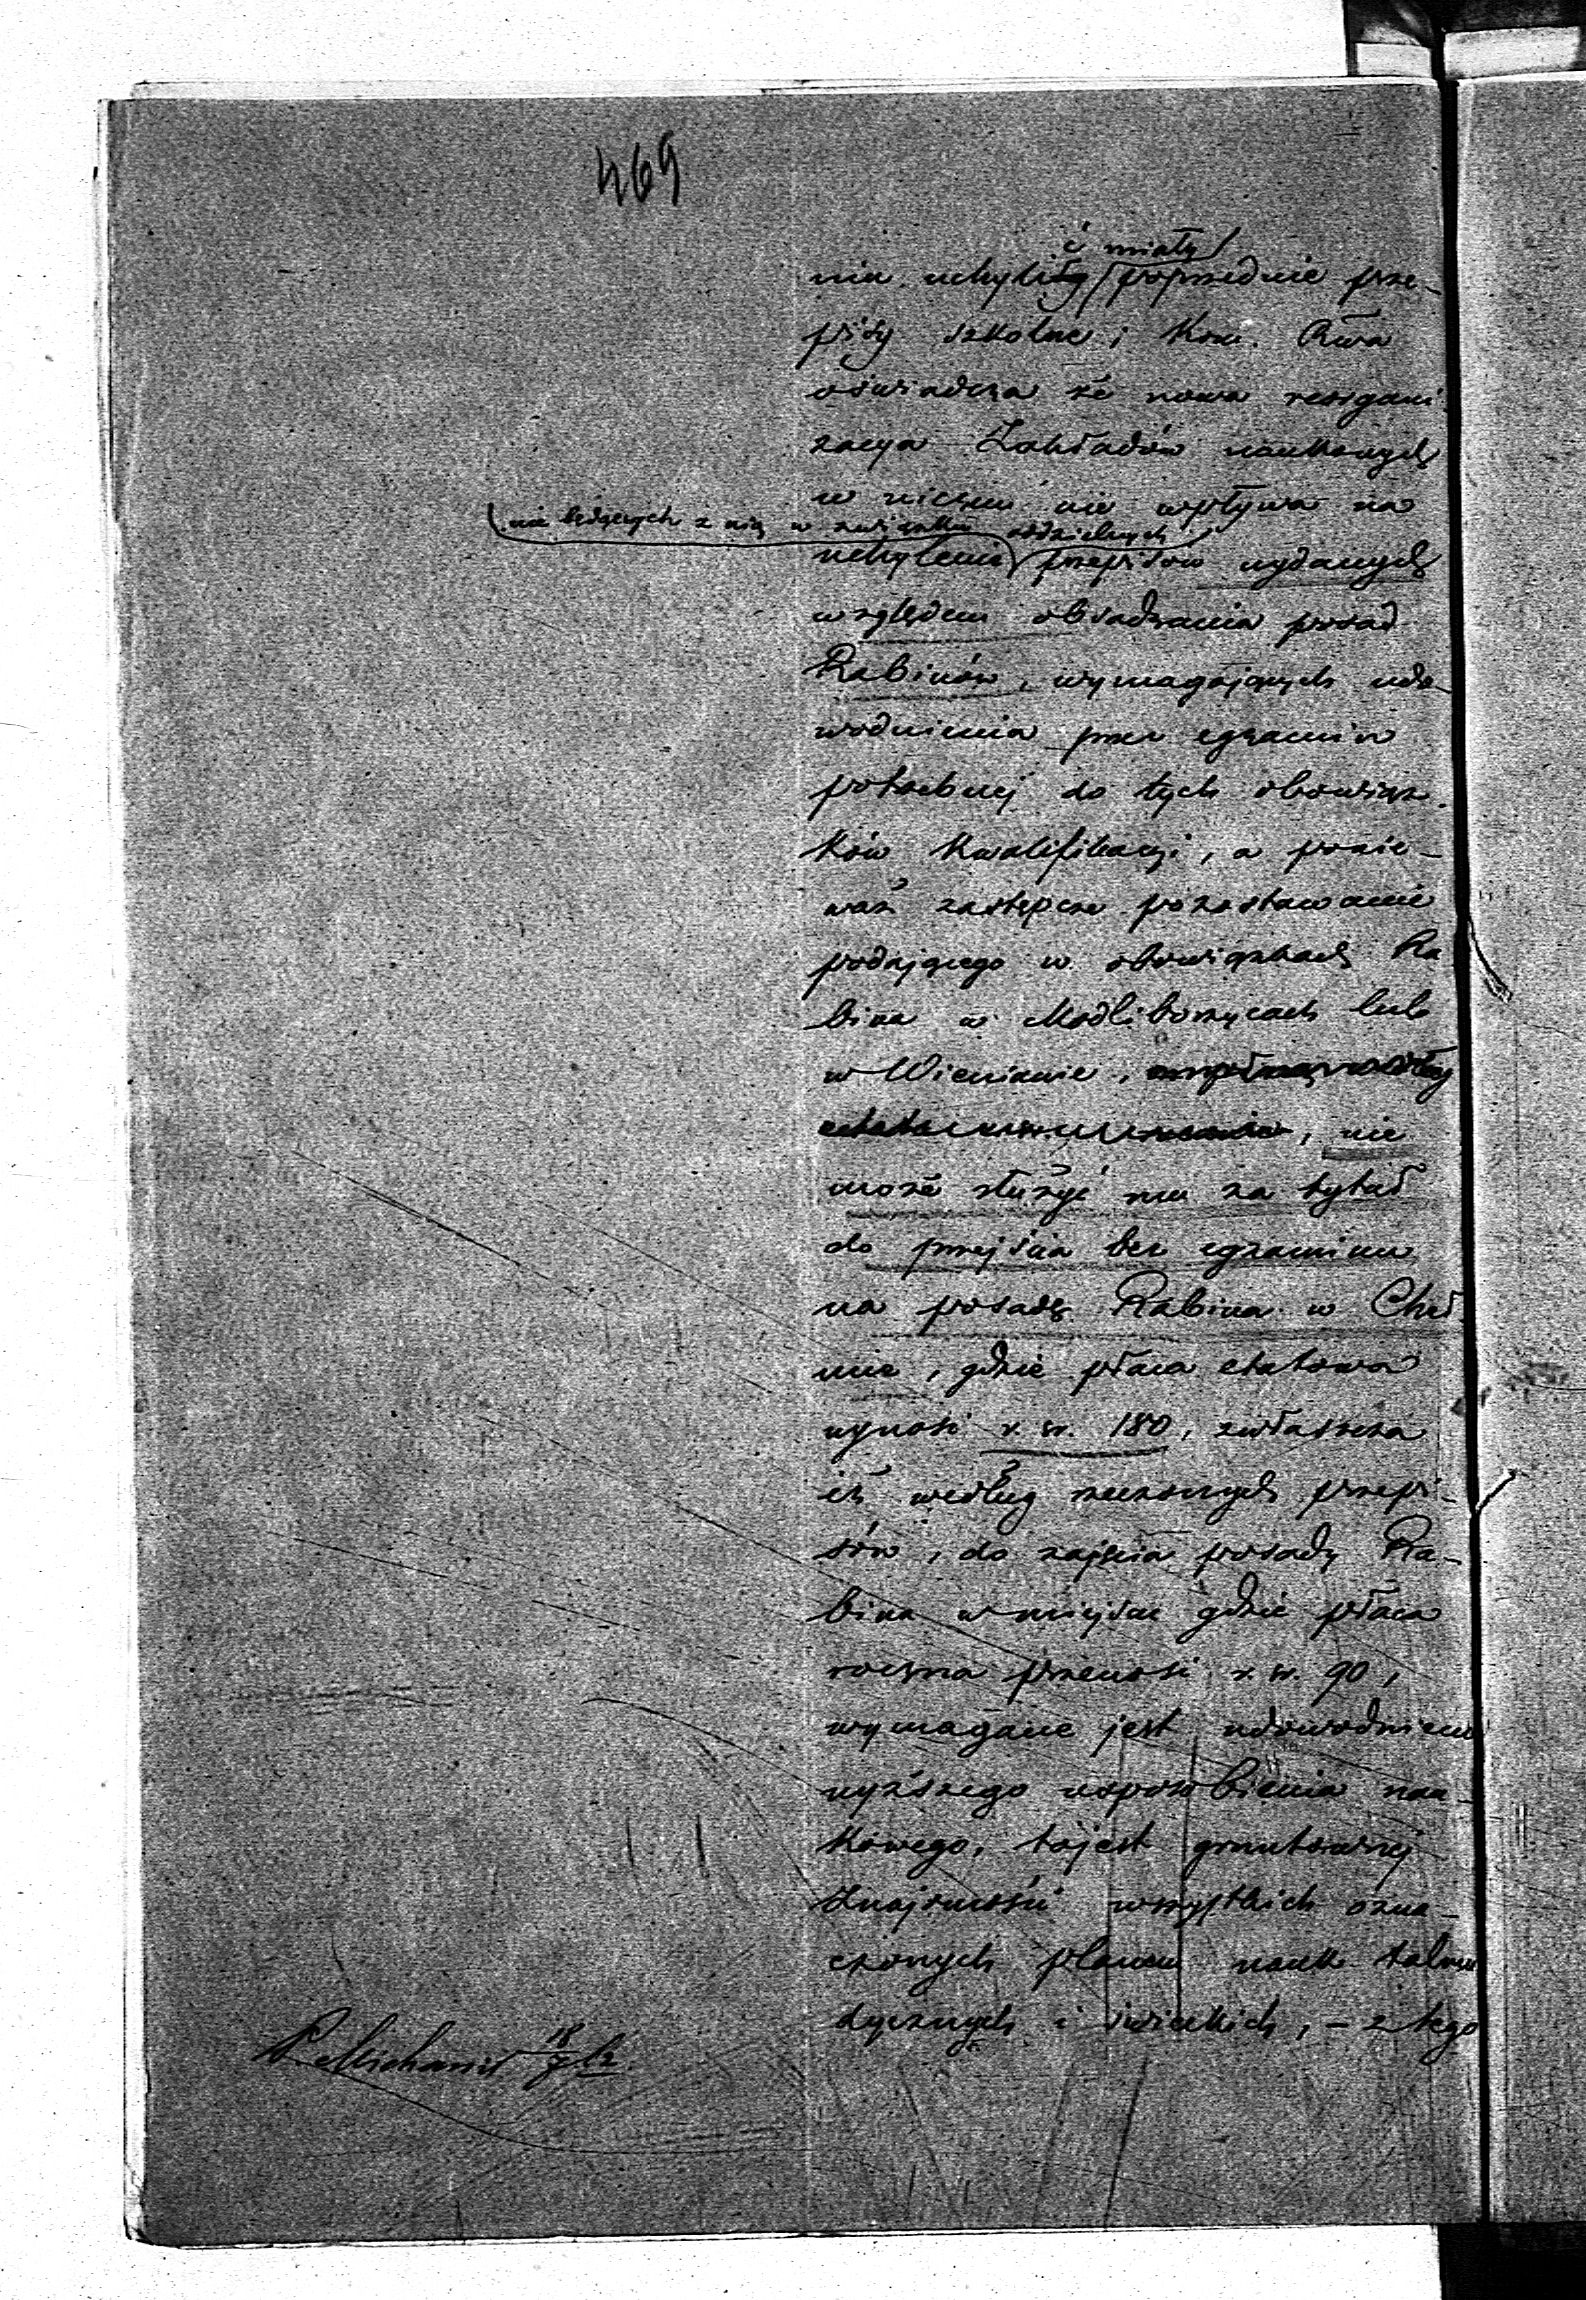 469
i miały
nia uchyliły poprzednie prze-
pisy szkolne; Kom. Rwa
oświadcza że nowa reorgani-
zacya Zakładów naukowych
w niczem nie wpływa na
nie będących z nią w związku oddzielnych
uchylenie przepisów wydanych
względem obsadzania posad
Rabinów, wymagających udo-
wodnienia przez egzamin
potrzebnej do tych obowiąz-
ków kwalifikacyi, a ponie-
waż zastępcze pozostawanie
podającego w obowiązkach Ra
bina w Modliborzycach lub
w Wieniawie,
, nie
może służyć mu za tytuł
do przejścia bez egzaminu
na posadę Rabina w Cheł
mie, gdzie płaca etatowa
wynosi r. sr. 180, zwłaszcza
iż według rzeczonych przepi-
sów, do zajęcia posady Ra-
bina w miejscu gdzie płaca
roczna przenosi r. sr. 90,
wymagane jest udowodnienie
wyższego usposobienia nau-
kowego, tojest gruntownej
znajomości wszystkich ozna-
czonych planem nauk talmu
dycznych i świeckich, – z tego
18/7 62